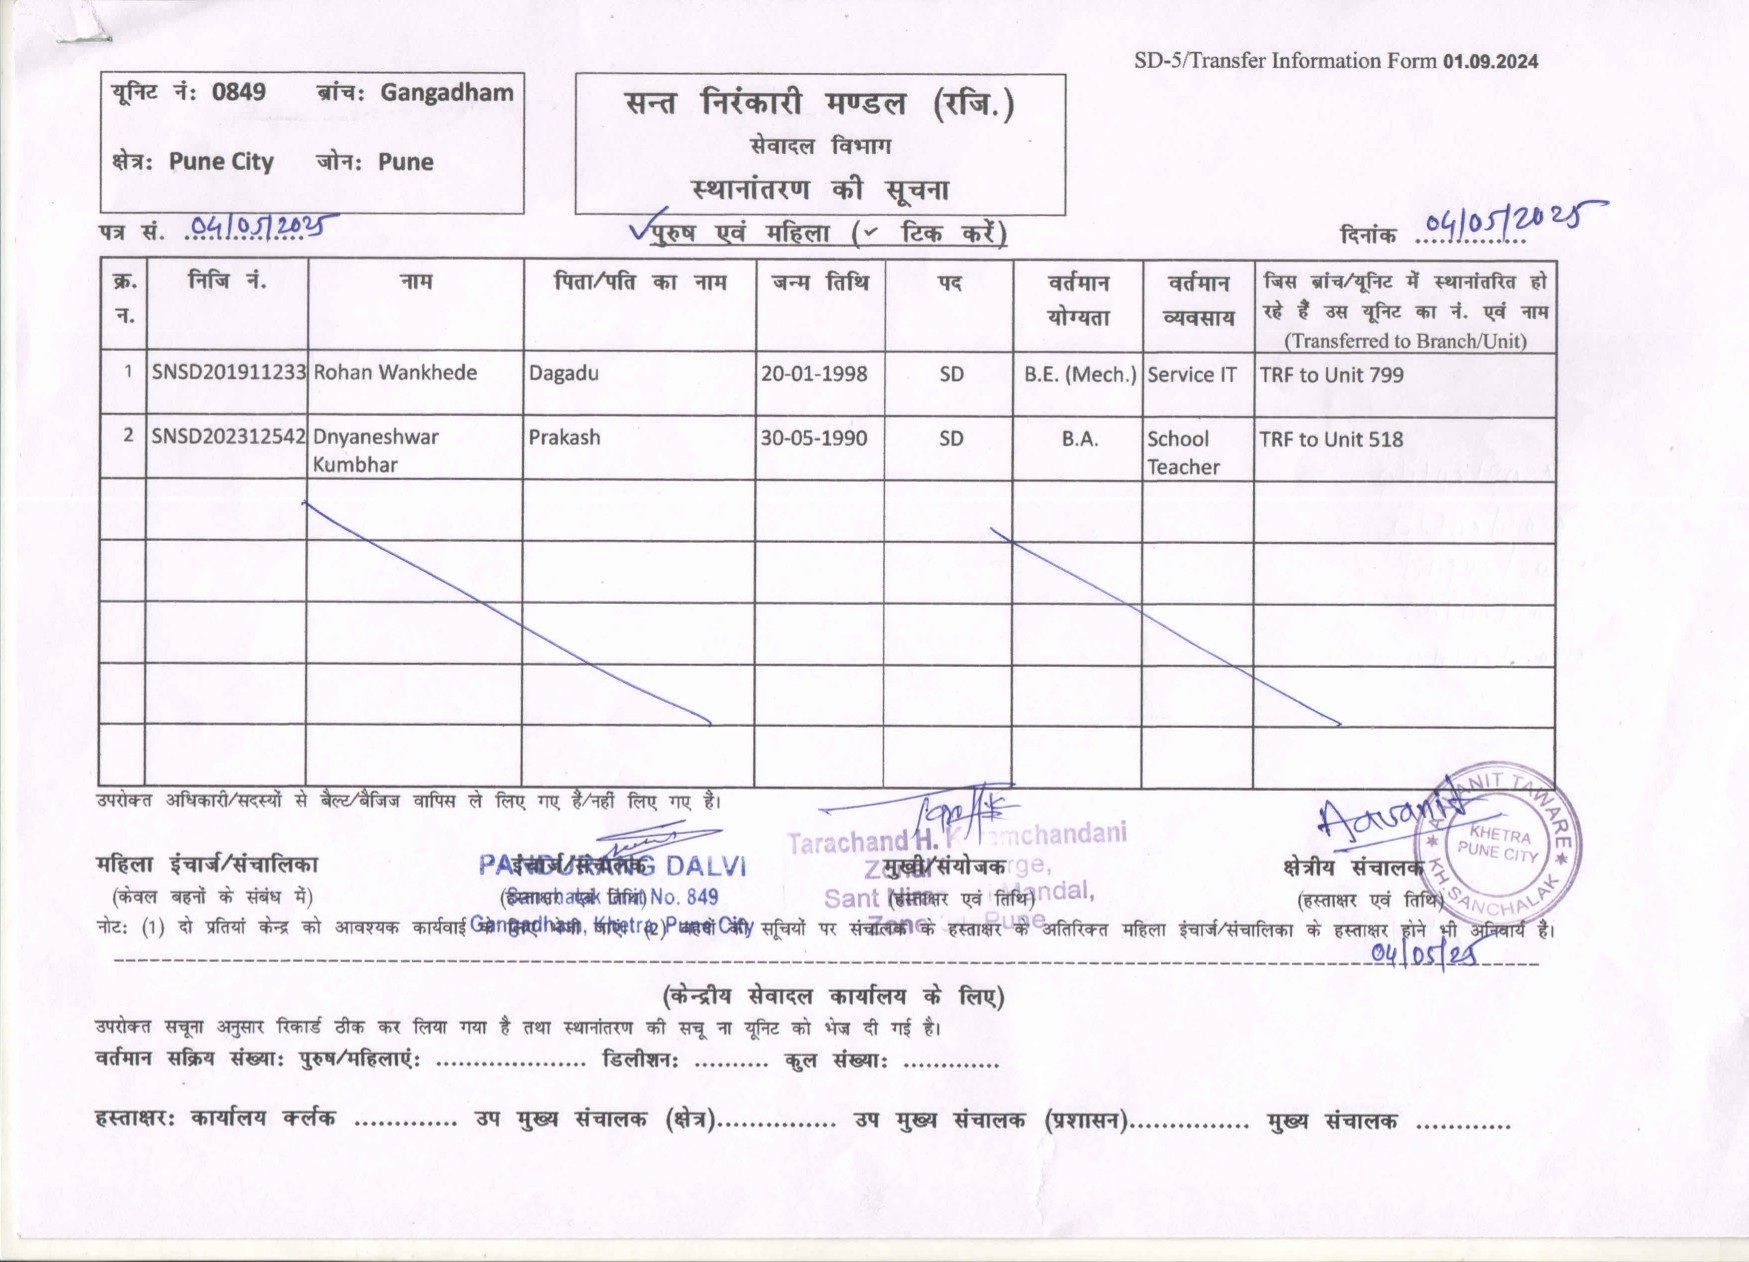 SD-5/Transfer Information Form 01.09.2024
यूनिट नं: 0849 ब्रांच: Gangadham
क्षेत्र: Pune City जोन: Pune
सन्त निरंकारी मण्डल (रजि.)
सेवादल विभाग
स्थानांतरण की सूचना
पत्र सं. 04/05/2025
✓पुरुष एवं महिला (✓ टिक करें)
दिनांक 04/05/2025
क्र. न. निजि नं. नाम पिता/पति का नाम जन्म तिथि पद वर्तमान योग्यता वर्तमान व्यवसाय जिस ब्रांच/यूनिट में स्थानांतरित हो रहे हैं उस यूनिट का नं. एवं नाम (Transferred to Branch/Unit)
1 SNSD201911233 Rohan Wankhede Dagadu 20-01-1998 SD B.E. (Mech.) Service IT TRF to Unit 799
2 SNSD202312542 Dnyaneshwar Kumbhar Prakash 30-05-1990 SD B.A. School Teacher TRF to Unit 518
उपरोक्त अधिकारी/सदस्यों से बैल्ट/बैजिज वापिस ले लिए गए हैं/नहीं लिए गए है।
महिला इंचार्ज/संचालिका इंचार्ज/संचालक मुखी/संयोजक क्षेत्रीय संचालक
(केवल बहनों के संबंध में) (हस्ताक्षर एवं तिथि) (हस्ताक्षर एवं तिथि) (हस्ताक्षर एवं तिथि)
PANDURANG DALVI
No. 849
Gangadham, Khetra Pune City
Tarachand H.
Sant
Aavanit
AVANIT TAWARE
KHETRA
PUNE CITY
KH.SANCHALAK
नोट: (1) दो प्रतियां केन्द्र को आवश्यक कार्यवाई (2) सूचियों पर संचालक के हस्ताक्षर के अतिरिक्त महिला इंचार्ज/संचालिका के हस्ताक्षर होने भी अनिवार्य है।
04/05/25
(केन्द्रीय सेवादल कार्यालय के लिए)
उपरोक्त सचूना अनुसार रिकार्ड ठीक कर लिया गया है तथा स्थानांतरण की सचू ना यूनिट को भेज दी गई है।
वर्तमान सक्रिय संख्या: पुरुष/महिलाएं: .................... डिलीशन: .......... कुल संख्या: .............
हस्ताक्षर: कार्यालय क्लंक ............. उप मुख्य संचालक (क्षेत्र)............... उप मुख्य संचालक (प्रशासन)............... मुख्य संचालक ............